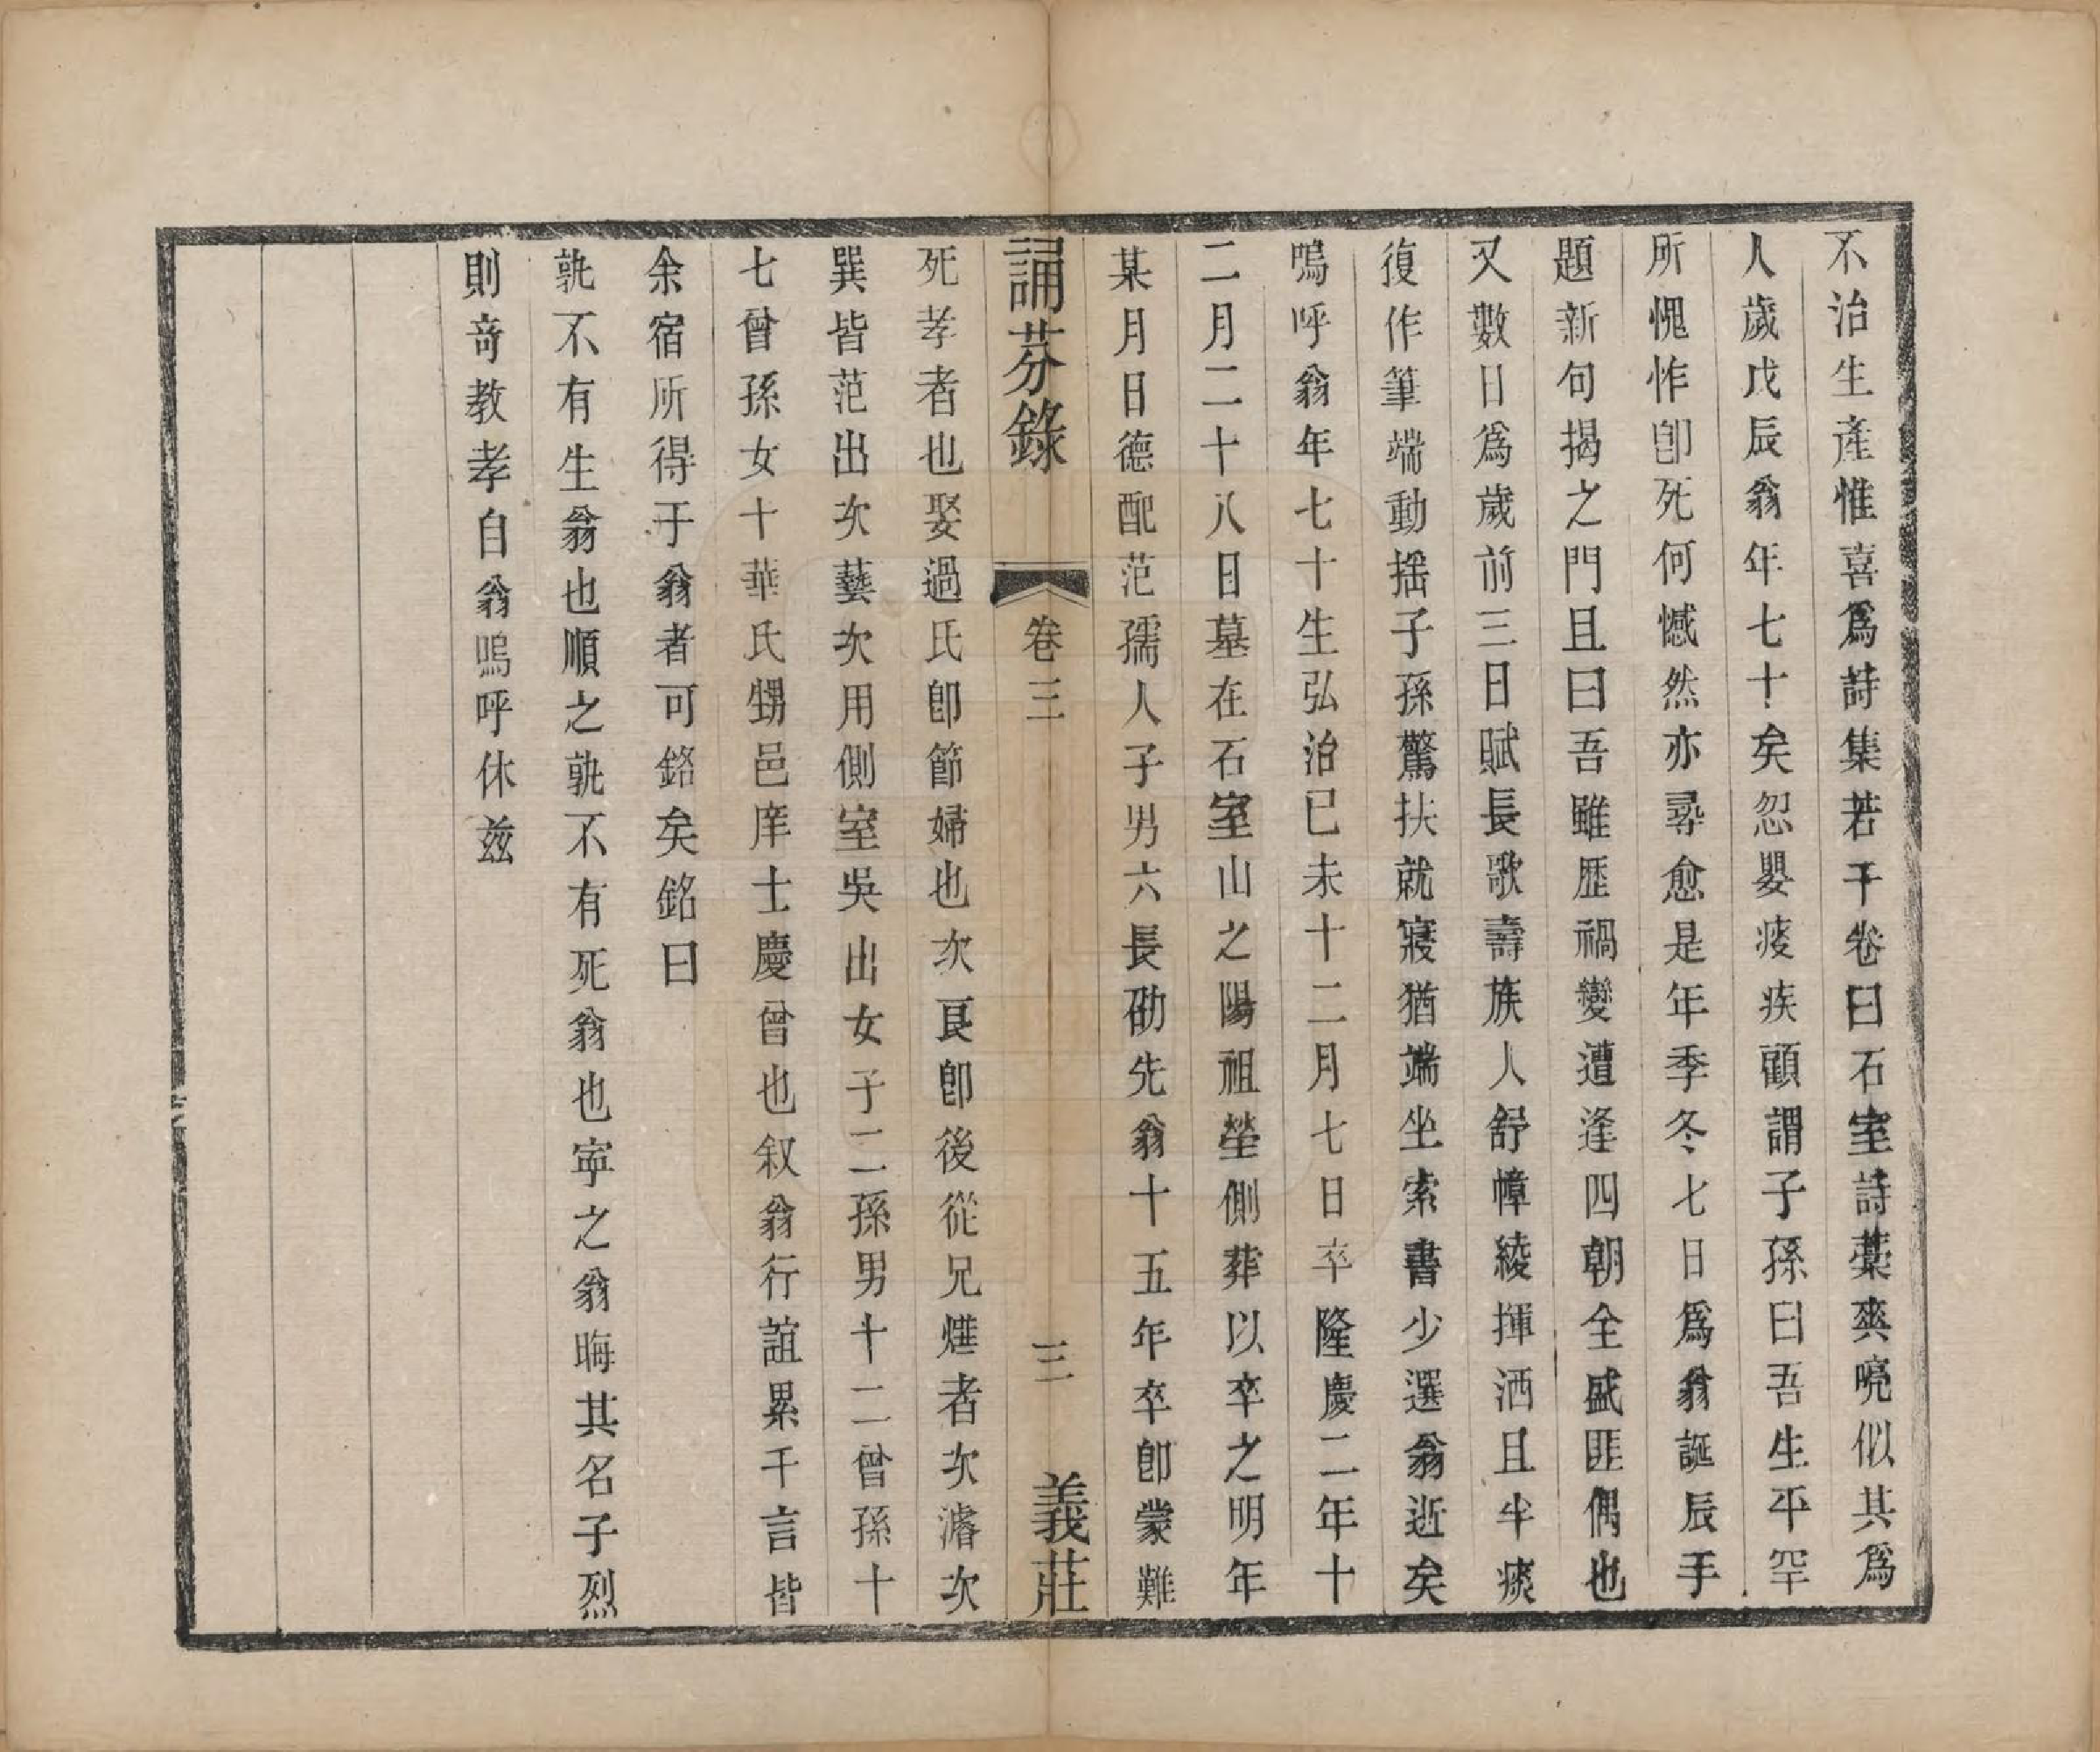 不治生產惟喜爲詩集若干卷曰石室詩藁爽喨似其爲
人歲戊辰翁年七十矣忽嬰痰疾顧謂子孫曰吾生平罕
所愧怍卽死何憾然亦尋愈是年季冬七日爲翁誕辰手
題新句揭之門且曰吾雖歷禍變遭逢四朝全盛匪偶也
又數日爲歲前三日賦長歌壽族人舒幛綾揮洒且半痰
復作筆端動搖子孫驚扶就寢猶端坐索書少選翁逝矣
嗚呼翁年七十生弘治己未十二月七日卒隆慶二年十
二月二十八日墓在石室山之陽祖塋側葬以卒之明年
某月日德配范孺人子男六長砺先翁十五年卒卽蒙難
誦芬錄 卷三 三 義莊
死孝者也娶過氏卽節婦也次艮卽後從兄燵者次濬次
巽皆范出次藝次用側室吳出女子二孫男十二曾孫十
七曾孫女十華氏甥邑庠士慶曾也叙翁行誼累千言皆
余宿所得于翁者可銘矣銘曰
孰不有生翁也順之孰不有死翁也寧之翁晦其名子烈
則奇教孝自翁嗚呼休兹